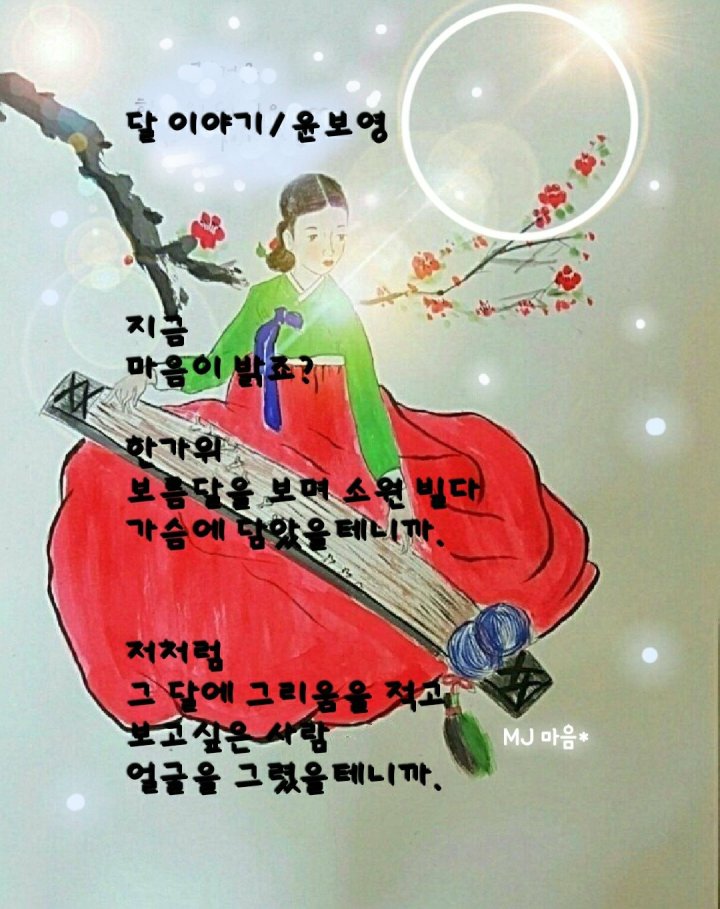 달 이야기/윤보영
지금
마음이 밝죠?
한가위
보름달을 보며 소원 빌다
가슴에 담았을테니까.
저처럼
그 달에 그리움을 적고
보고싶은 사람
얼굴을 그렸을테니까.
MJ 마음*